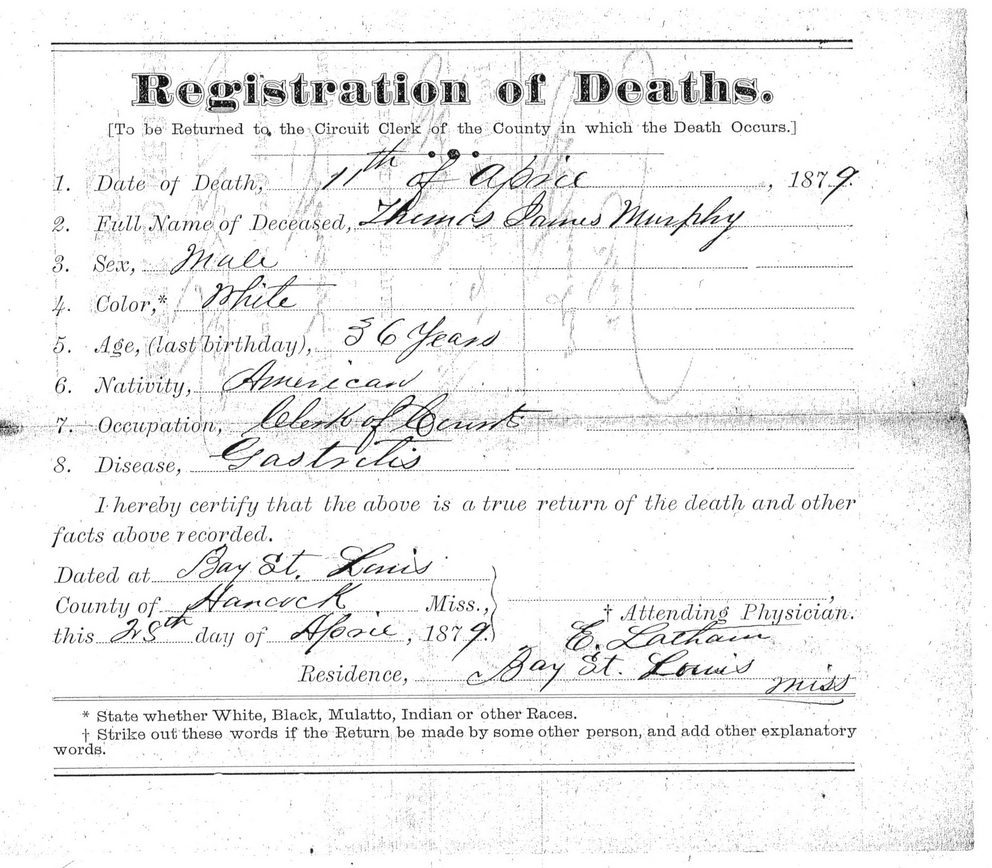 Registration of Deaths.
[To be Returned to the Circuit Clerk of the County in which the Death Occurs.]
1. Date of Death, 11th of April, 1879.
2. Full Name of Deceased, Thomas James Murphy
3. Sex, Male
4. Color,* White
5. Age, (last birthday), 36 Years
6. Nativity, American
7. Occupation, Clerk of Court
8. Disease, Gastritis
I hereby certify that the above is a true return of the death and other
facts above recorded.
Dated at Bay St. Louis
County of Hancock Miss.,
† Attending Physician.
this 28th day of April, 1879.
E. Latham
Residence, Bay St. Louis Miss
* State whether White, Black, Mulatto, Indian or other Races.
† Strike out these words if the Return be made by some other person, and add other explanatory
words.